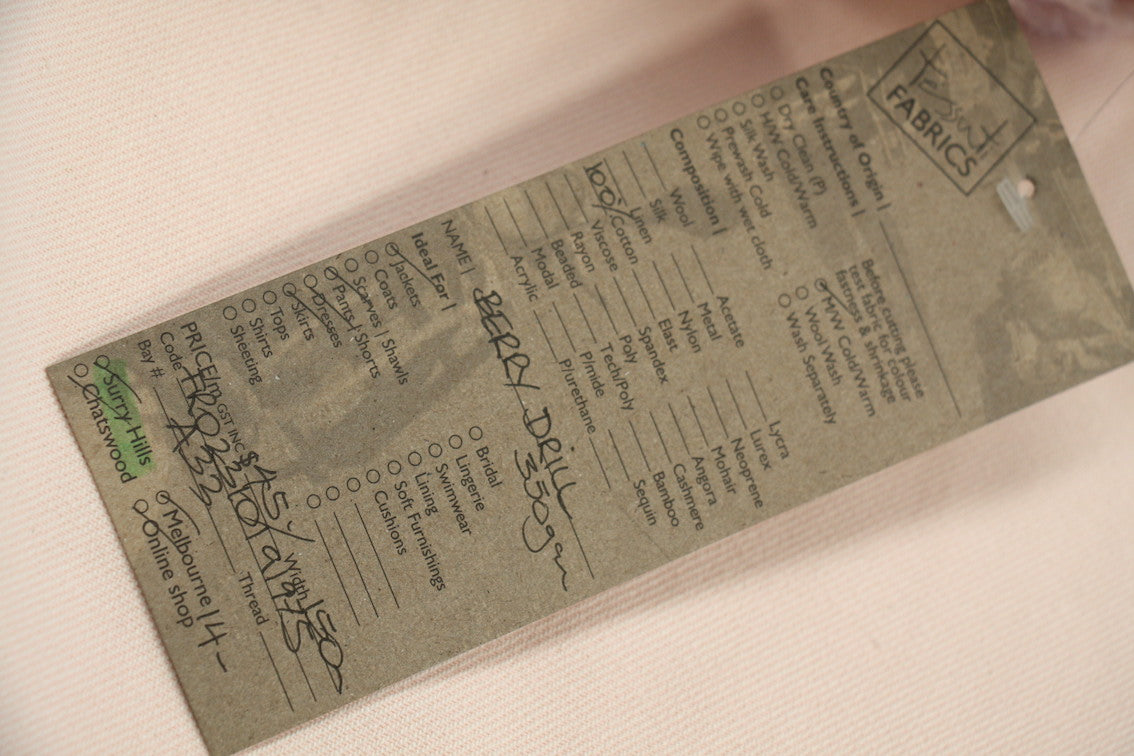 tessuti
FABRICS
Country of Origin |
Care Instructions |
Dry Clean (P)
H/W Cold/Warm
Silk Wash
Prewash Cold
Wipe with wet cloth
Before cutting please
test fabric for colour
fastness & shrinkage
M/W Cold/Warm
Wool Wash
Wash Separately
Composition |
Wool
Silk
Linen
100% Cotton
Viscose
Rayon
Beaded
Modal
Acrylic
Acetate
Metal
Nylon
Elast
Spandex
Poly
Tech/Poly
P/mide
P/urethane
Lycra
Lurex
Neoprene
Mohair
Angora
Cashmere
Bamboo
Sequin
NAME | BERRY DRILL
350gm
Ideal For |
Jackets
Coats
Scarves | Shawls
Pants | Shorts
Dresses
Skirts
Tops
Shirts
Sheeting
Bridal
Lingerie
Swimwear
Lining
Soft Furnishings
Cushions
PRICE/m GST INC $45.- Width 150
Code
Bay # A32 Thread
Surry Hills
Chatswood
Melbourne 14-
Online shop